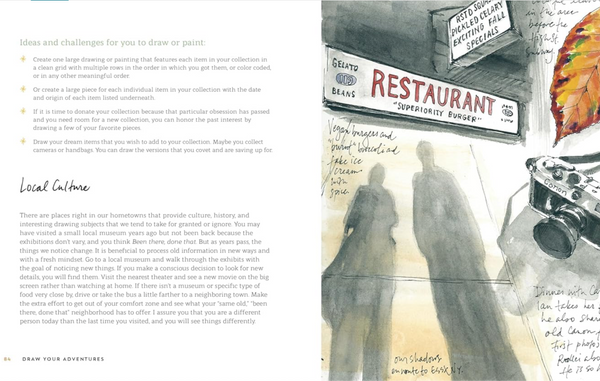 Ideas and challenges for you to draw or paint:
Create one large drawing or painting that features each item in your collection in
a clean grid with multiple rows in the order in which you got them, or color coded,
or in any other meaningful order.
Or create a large piece for each individual item in your collection with the date
and origin of each item listed underneath.
If it is time to donate your collection because that particular obsession has passed
and you need room for a new collection, you can honor the past interest by
drawing a few of your favorite pieces.
Draw your dream items that you wish to add to your collection. Maybe you collect
cameras or handbags. You can draw the versions that you covet and are saving up for.
Local Culture
There are places right in our hometowns that provide culture, history, and
interesting drawing subjects that we tend to take for granted or ignore. You may
have visited a small local museum years ago but not been back because the
exhibitions don't vary, and you think Been there, done that. But as years pass, the
things we notice change. It is beneficial to process old information in new ways and
with a fresh mindset. Go to a local museum and walk through the exhibits with
the goal of noticing new things. If you make a conscious decision to look for new
details, you will find them. Visit the nearest theater and see a new movie on the big
screen rather than watching at home. If there isn't a museum or specific type of
food very close by, drive or take the bus a little farther to a neighboring town. Make
the extra effort to get out of your comfort zone and see what your "same old," "been
there, done that" neighborhood has to offer. I assure you that you are a different
person today than the last time you visited, and you will see things differently.
DRAW YOUR ADVENTURES
RSTD SQUASH
PICKLED CELERY
EXCITING FALL
SPECIALS
in the area
before the
GELATO
BEANS
RESTAURANT
"SUPERIORITY BURGER"
Vegan burgers and
burnt broccoli and
fake ice
cream
with
Canon
our shadows
en route to Essex, N.Y.
Dinner with
Ian takes her
he also shar
old Canon
first photos